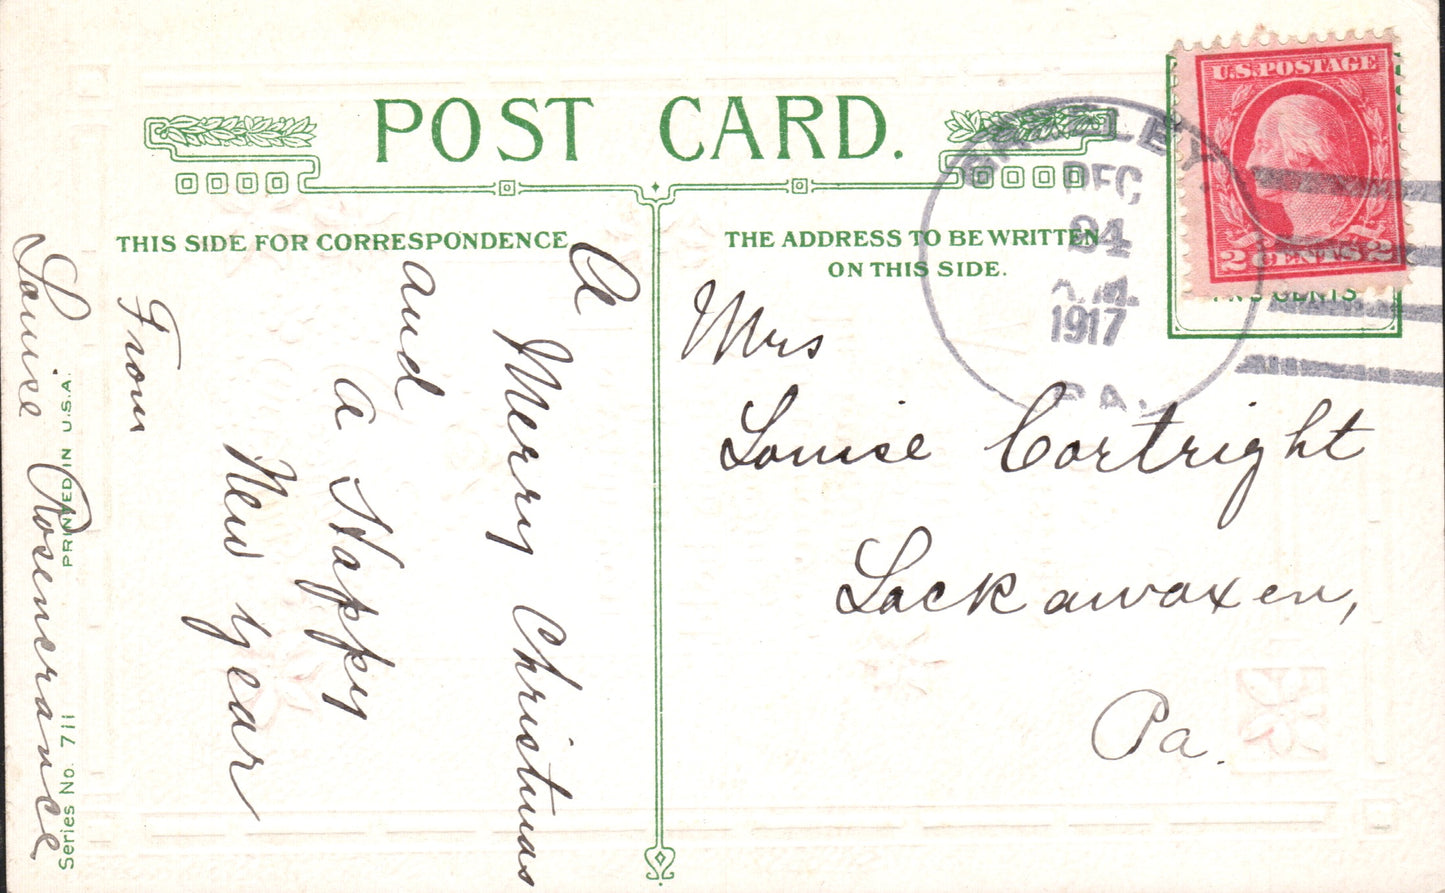 POST CARD.
THIS SIDE FOR CORRESPONDENCE
THE ADDRESS TO BE WRITTEN
ON THIS SIDE.
U.S. POSTAGE
2 CENTS 2
CENTS
GREELEY,
DEC
24
A.M.
1917
PA.
A
Merry Christmas
and
a Happy
New Year
From
Louise Rosencrance
Mrs
Louise Cortright
Lackawaxen,
Pa.
PRINTED IN U.S.A.
Series No. 711